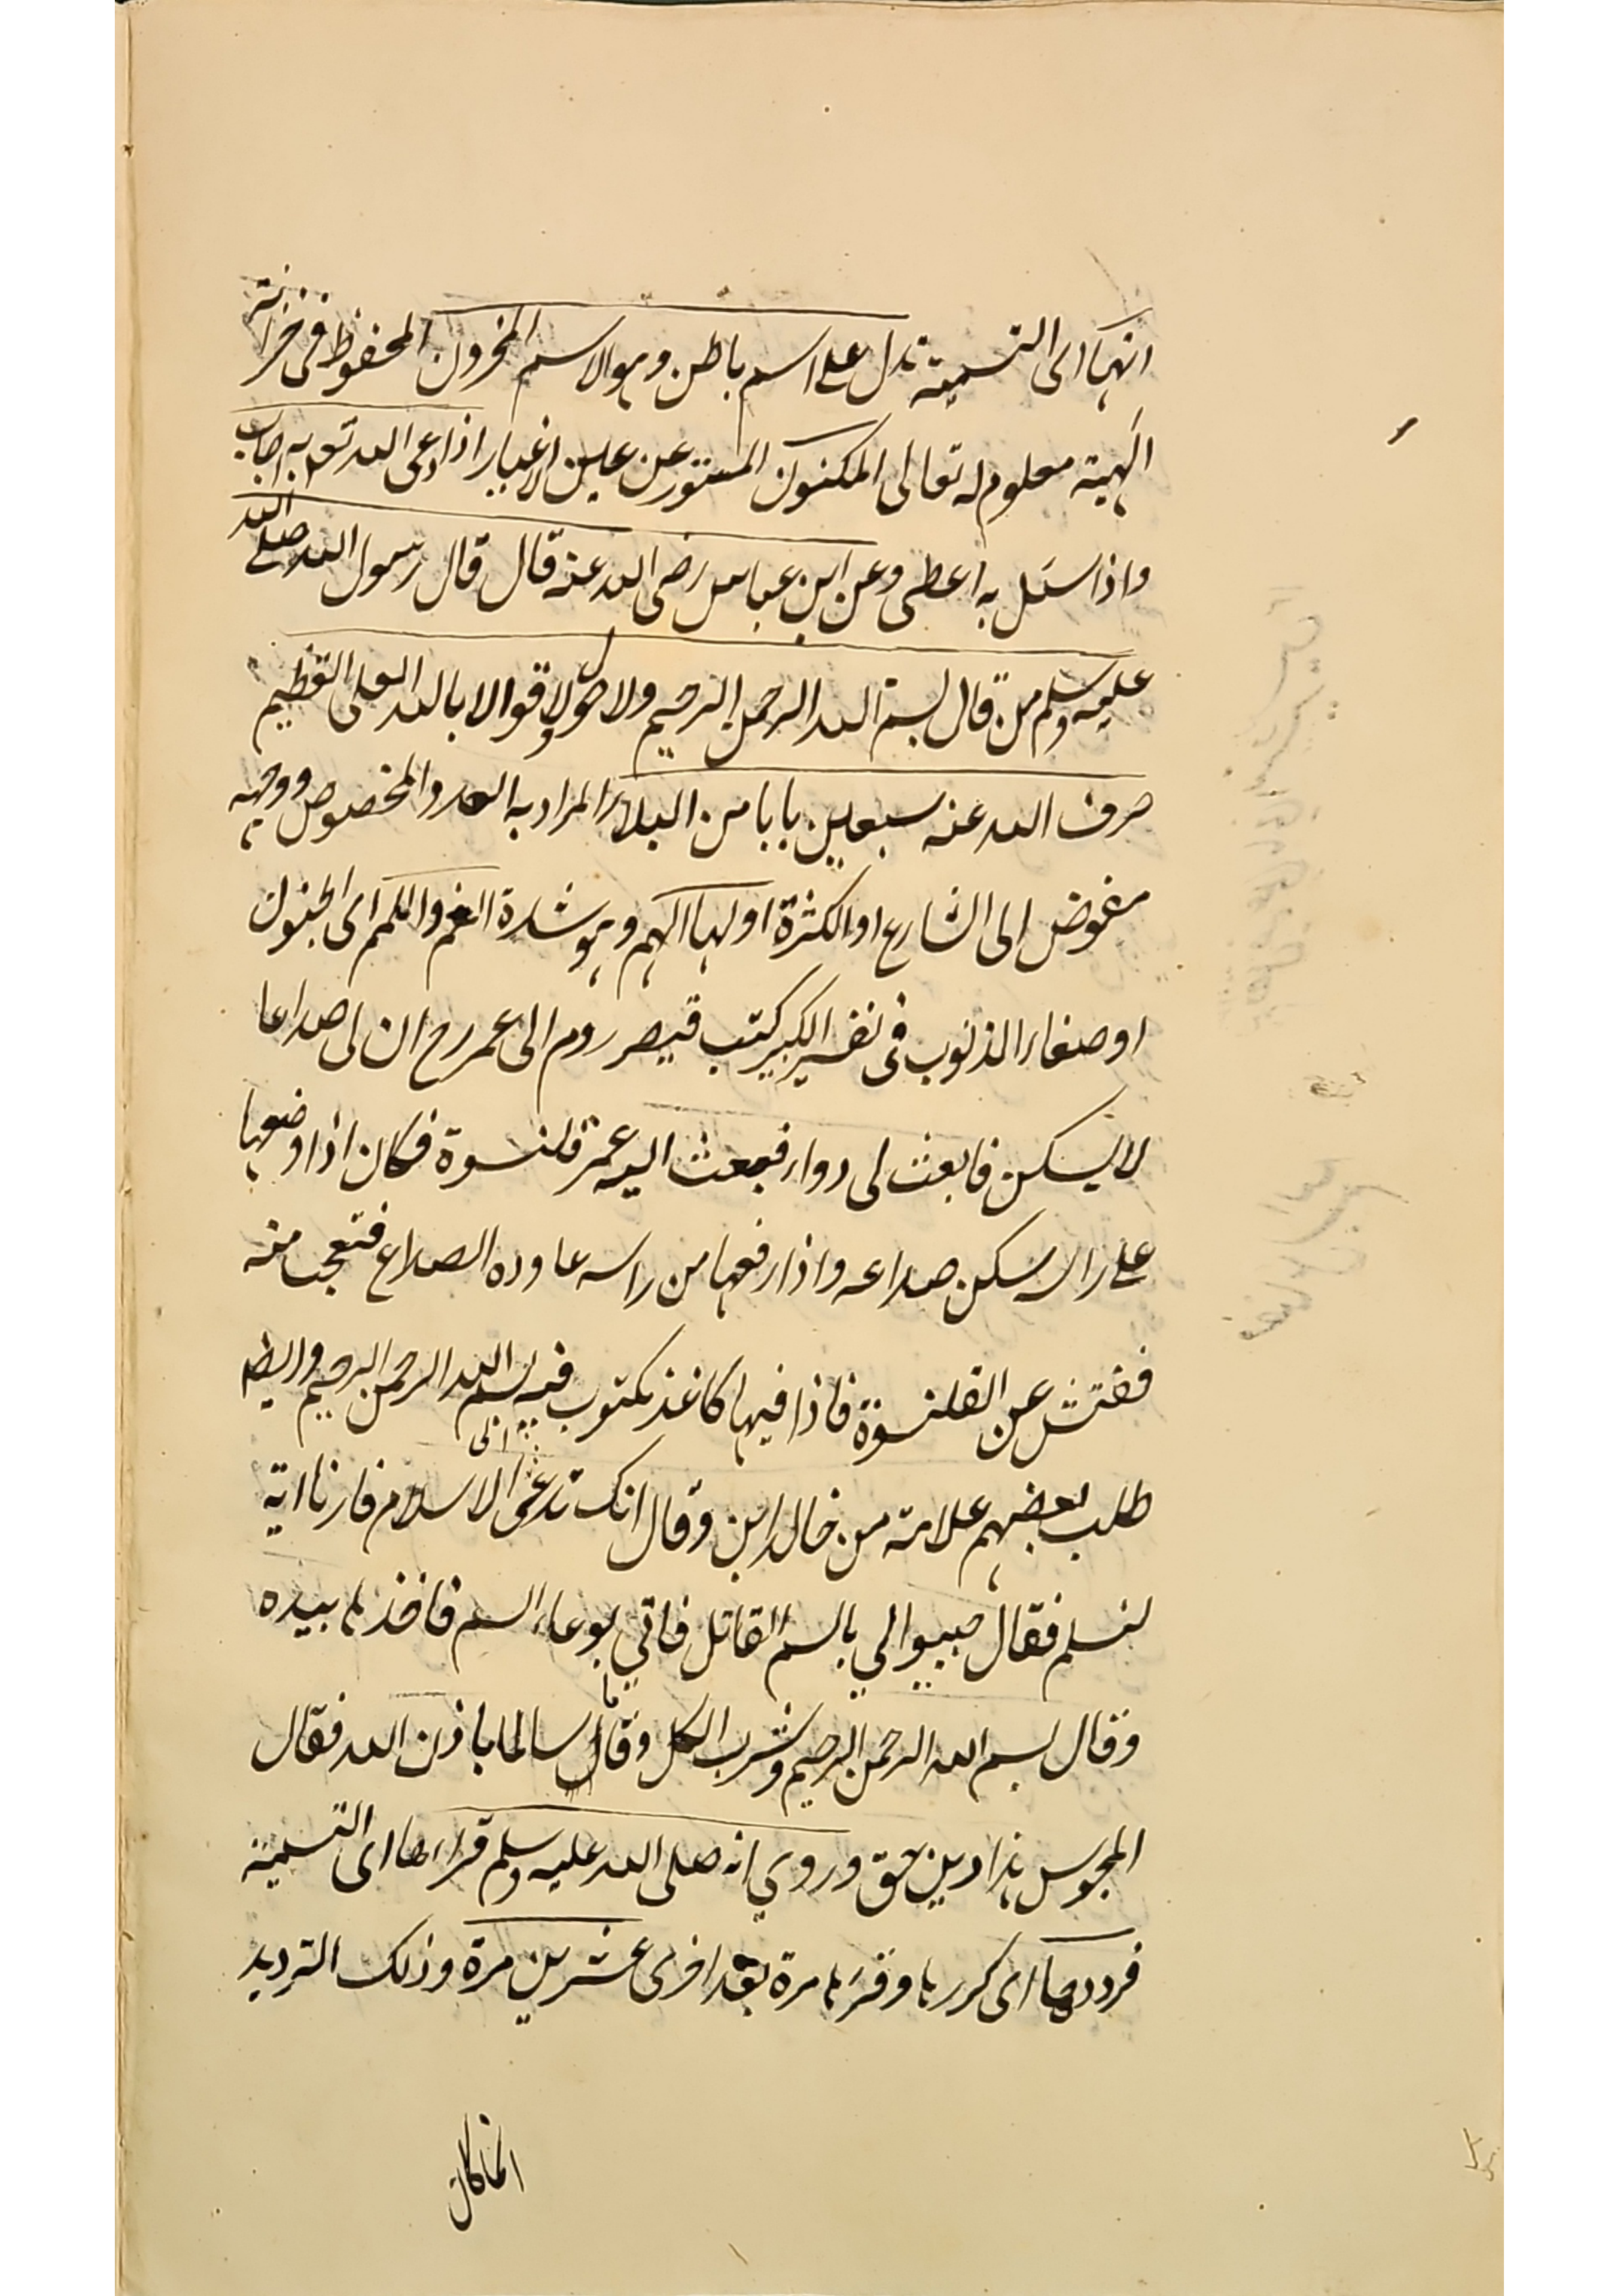 انها اى التسمية تدل على اسم باطن وهو الاسم المخزون المحفوظ فى خزانته
الهية معلوم له تعالى المكنون المستور عن عين الاغيار اذا دعى الله تعو به اجاب
واذا سئل به اعطى وعن ابن عباس رضى الله عنه قال قال رسول الله صلى الله
عليه وسلم من قال بسم الله الرحمن الرحيم ولا حول ولا قوة الا بالله العلى العظيم
صرف الله عنه سبعين بابا من البلاء المراد به العدد المخصوص ووجهه
مفوض الى الشارع او الكثرة اولها الهم وهو شدة الغم واللمم اى الجنون
او صغار الذنوب فى تفسير الكبير كتب قيصر روم الى عمر رح ان لى صداعا
لا يسكن فابعث لى دواء فبعث اليه عمر قلنسوة فكان اذا وضعها
على راسه سكن صداعه واذا رفعها من راسه عاوده الصداع فتعجب منه
ففتش عن القلنسوة فاذا فيها كاغذ مكتوب فيه بسم الله الرحمن الرحيم وايضا
طلب بعضهم علامة من خالد ابن وقال انك تدعى الى الاسلام فارنا اية
لنسلم فقال جيبوا لي بالسم القاتل فاتي بوعاء السم فاخذها بيده
وقال بسم الله الرحمن الرحيم وشرب الكل وقام سالما باذن الله فقال
المجوس هذا دين حق وروي انه صلى الله عليه وسلم قراءها اى التسمية
فرددها اى كررها وقرءها مرة بعد اخرى عشرين مرة وذلك الترديد
انما كان